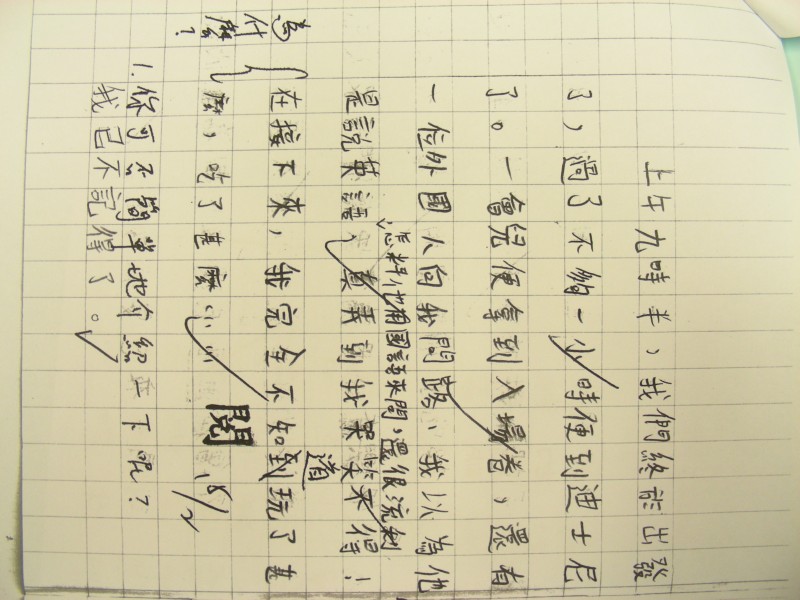 上午九時半，我們終於出發
了，過了不夠一小時便到迪士尼
了。一會兒便拿到入場卷，還有
一位外國人向我問路，我以為他
怎料他用國語來問，還很流利
是說英語，真到我哭笑不得！
在接下來，我完全不知到玩了甚
道
麼，吃了甚麼……
閱 18/2
為什麼？
1.你可否簡單地介紹一下呢？
我已不記得了。